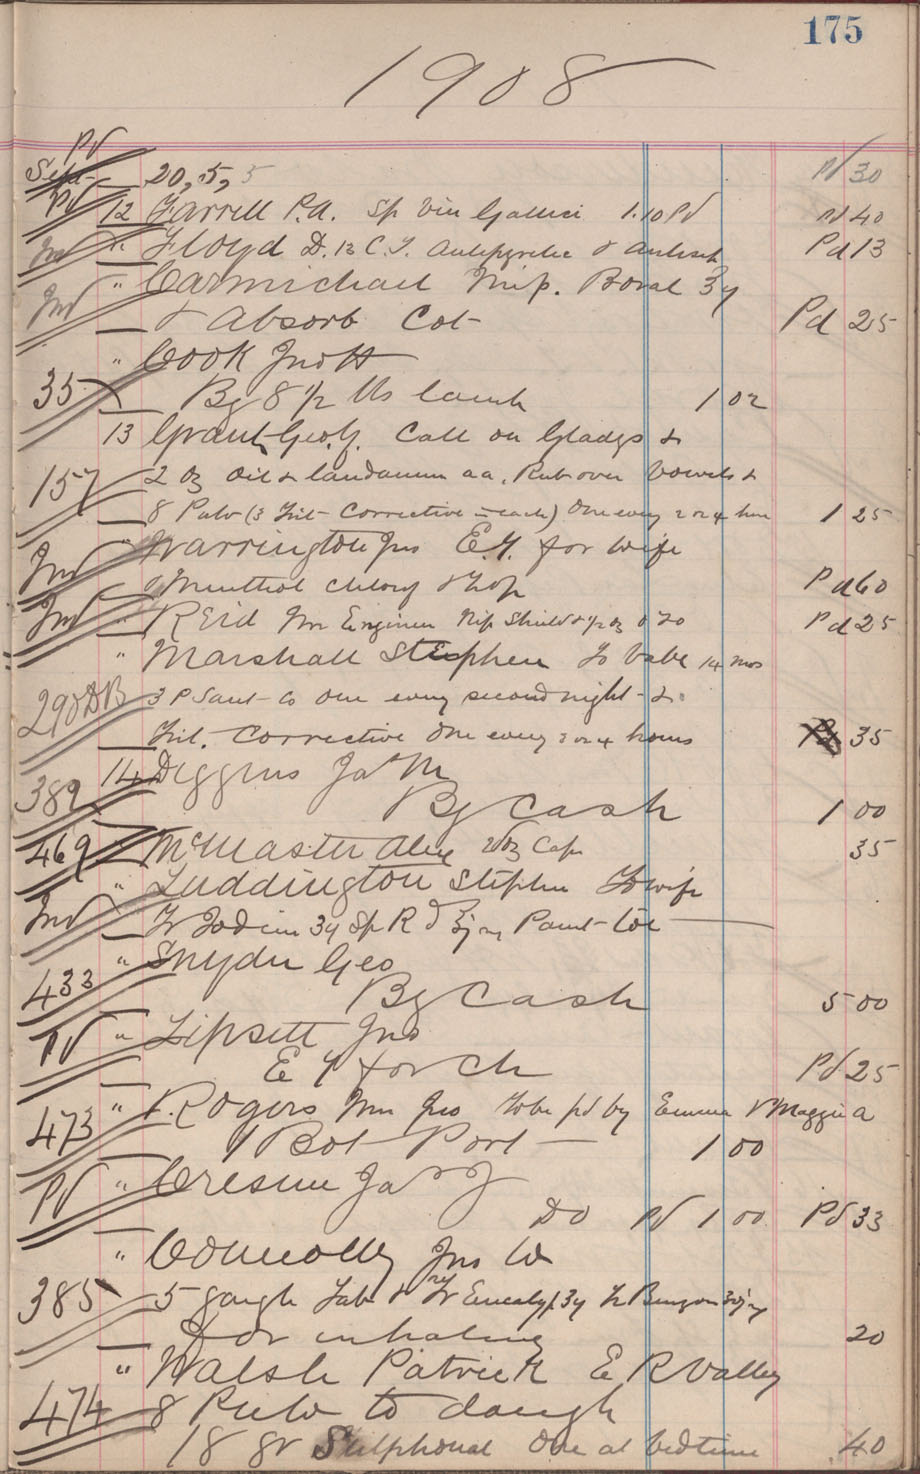 175
1908
Pd
Sept 20, 15, 5 Pd 30
Pd 12 Farrell P.A. Sp Vin Gallici 1.10 Pd Pd 40
" Floyd D. 13 C.T. Antipyretic & Pd 13
" Carmichael Boral 3y
& Absorb Cot Pd 25
" Cook Jno H
35 By 8 1/2 lbs lamb 1 02
13 Grant Geo. Call on Gladys &
157 2 oz Oil & laudanum aa. Rub over bowels &
8 Pulv (3 Corrective in each) One every 2 or 4 hrs 1 25
" Warrington Jno E.Y. for wife
Menthol Pd 60
" Reid Wm Engineer Nip Shield & 1/2 oz Pd 25
" Marshall Stephen To babe 14 mos
290 DB 3 P Sant- Co One every second night &
Corrective One every 2 or 4 hours Pd 35
14 Diggins Jas M
389 By Cash 1 00
469 McMaster Alex Caps 35
" Luddington Stephen To wife
Tr Iodine 3y Sp R Paint toe
" Snyder Geo
433 By Cash 5 00
Pd " Lipsett Jno
E Y for Ch Pd 25
" Rogers Wm Jno to be pd by Emma & Maggie a
473 1 Bot Port 1 00
Pd " Jas J
Do Pd 1 00 Pd 33
" Connolly Jno W
385 5 gaugh Tab & Tr Eucalypt 3y Tr Benzoin
for inhaling 20
" Walsh Patrick E R Valley
474 8 Pulv to daugh
18 gr Sulphonal One at bedtime 40